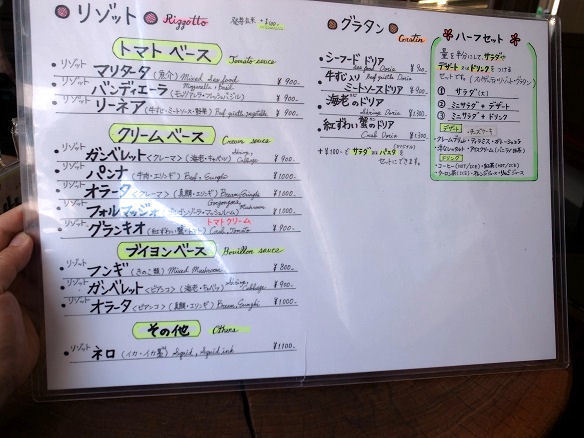 リゾット Riggotto
トマトベース Tomato sauce
・リゾット マリナータ (魚介) Mixed Sea food ¥900-
・リゾット バンディエーラ (モッツァレラ・フレッシュバジル) ¥900-
・リゾット リーネア (牛すじ・ミートソース・野菜) Beef, vegetable ¥900-
クリームベース Cream sauce
・リゾット ガンベレット <クレーマ> (海老・キャベツ) Shrimp, Cabbage ¥900-
・リゾット パンナ (牛肉・エリンギ) Beef, ¥1000-
・リゾット オラータ <クレーマ> (真鯛・エリンギ) Bream, ¥1000-
・リゾット フォルマッジオ (ゴルゴンゾーラ・マッシュルーム) ¥1000-
トマトクリーム
・リゾット グランキオ (紅ずわい蟹・トマト) Crab, Tomato ¥900-
ブイヨンベース Bouillon sauce
・リゾット フンギ (きのこ類) Mixed Mushroom ¥800-
・リゾット ガンベレット <ビアンコ> (海老・キャベツ) Shrimp, Cabbage ¥900-
・リゾット オラータ <ビアンコ> (真鯛・エリンギ) Bream, ¥1000-
その他 Others
・リゾット ネロ (イカ・イカ墨) Squid, Squid ink ¥1100-
グラタン Gratin
・シーフードドリア Sea food Doria ¥900
・牛すじ入り
ミートソースドリア ¥900
・海老のドリア Shrimp Doria ¥1300
・紅ずわい蟹のドリア Crab Doria ¥1300
+¥100-でサラダ又はパスタを
セットにできます。
ハーフセット
量を半分にして、サラダや
デザート又はドリンクをつける
セットです。(スパゲッティ・リゾット・グラタン)
① サラダ(大)
② ミニサラダ + デザート
③ ミニサラダ + ドリンク
デザート ・チーズケーキ
・クレームブリュレ・ティラミス・ガトーショコラ
ドリンク
・コーヒー(HOT/ICE)・紅茶(HOT/ICE)
・ウーロン茶(ICE)・オレンジジュース・りんごジュース